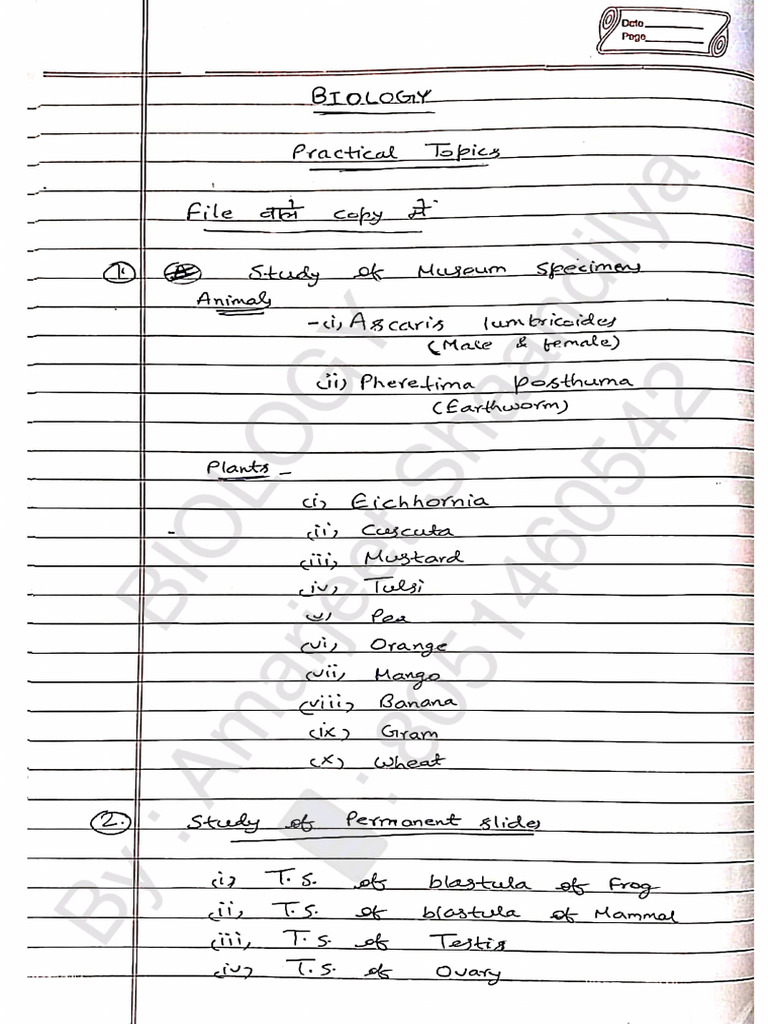 Date
Page
BIOLOGY
Practical Topics
File वाले copy में
1. Study of Museum Specimens
Animals
-(i) Ascaris lumbricoides
(Male & female)
(ii) Pheretima posthuma
(Earthworm)
Plants -
(i) Eichhornia
(ii) Cuscuta
(iii) Mustard
(iv) Tulsi
(v) Pea
(vi) Orange
(vii) Mango
(viii) Banana
(ix) Gram
(x) Wheat
2. Study of Permanent slides
(i) T.S. of blastula of Frog
(ii) T.S. of blastula of Mammal
(iii) T.S. of Testis
(iv) T.S. of Ovary
BIOLOGY
By : Amarjeet Shaandilya
: 8051460542